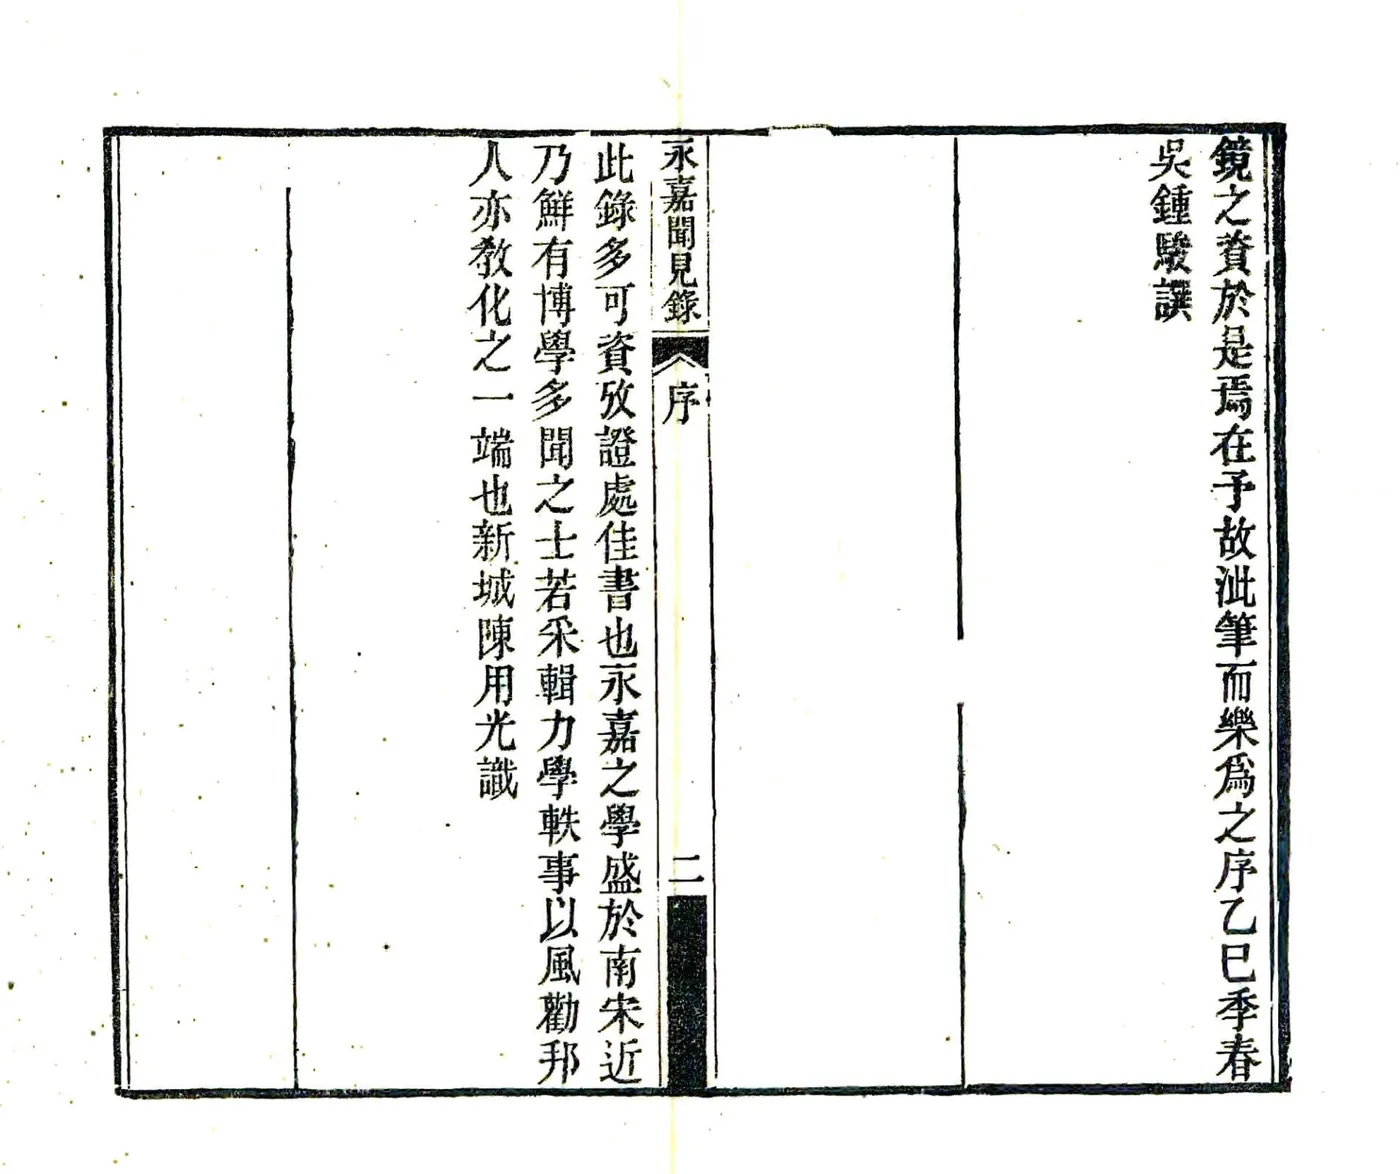 鏡之資於是焉在予故泚筆而樂爲之序乙巳季春
吳鍾駿譔
永嘉聞見錄
序
二
此錄多可資攷證處佳書也永嘉之學盛於南宋近
乃鮮有博學多聞之士若采輯力學軼事以風勸邦
人亦教化之一端也新城陳用光識